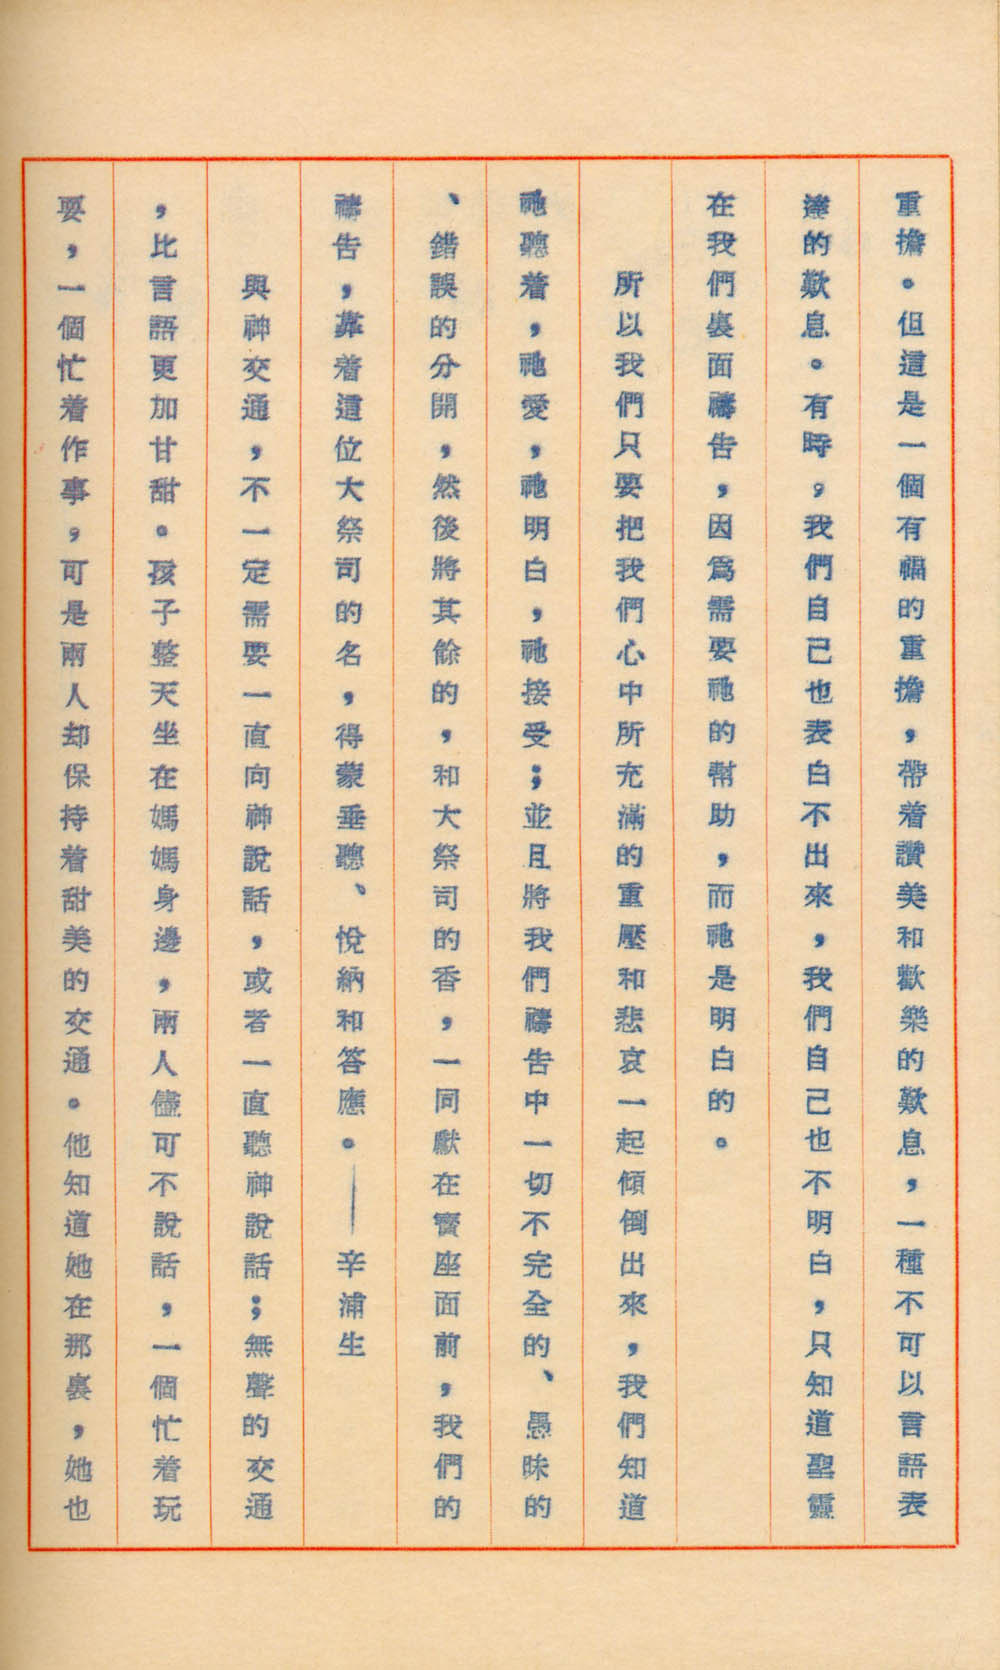 重擔。但這是一個有福的重擔，帶着讚美和歡樂的歎息，一種不可以言語表
達的歎息。有時，我們自己也表白不出來，我們自己也不明白，只知道聖靈
在我們裏面禱告，因爲需要祂的幫助，而祂是明白的。
所以我們只要把我們心中所充滿的重壓和悲哀一起傾倒出來，我們知道
祂聽着，祂愛，祂明白，祂接受；並且將我們禱告中一切不完全的、愚昧的
、錯誤的分開，然後將其餘的，和大祭司的香，一同獻在寳座面前，我們的
禱告，靠着這位大祭司的名，得蒙垂聽、悅納和答應。——辛浦生
與神交通，不一定需要一直向神說話，或者一直聽神說話；無聲的交通
，比言語更加甘甜。孩子整天坐在媽媽身邊，兩人儘可不說話，一個忙着玩
耍，一個忙着作事，可是兩人却保持着甜美的交通。他知道她在那裏，她也